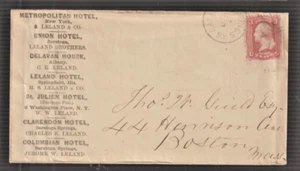 METROPOLITAN HOTEL,
New York,
S. LELAND & CO.
UNION HOTEL,
Saratoga,
LELAND BROTHERS.
DELAVAN HOUSE,
Albany,
LELAND.
LELAND HOTEL,
Springfield, Ills.
H. S. LELAND & CO.
ST. JULIEN HOTEL,
Washington Place, N. Y.
W. W. LELAND
CLARENDON HOTEL,
Saratoga Springs,
CHARLES E. LELAND.
COLUMBIAN HOTEL,
Saratoga Springs,
JEROME W. LELAND
Thos. W. Auld Esq
44 Harrison Av
Boston
Mass